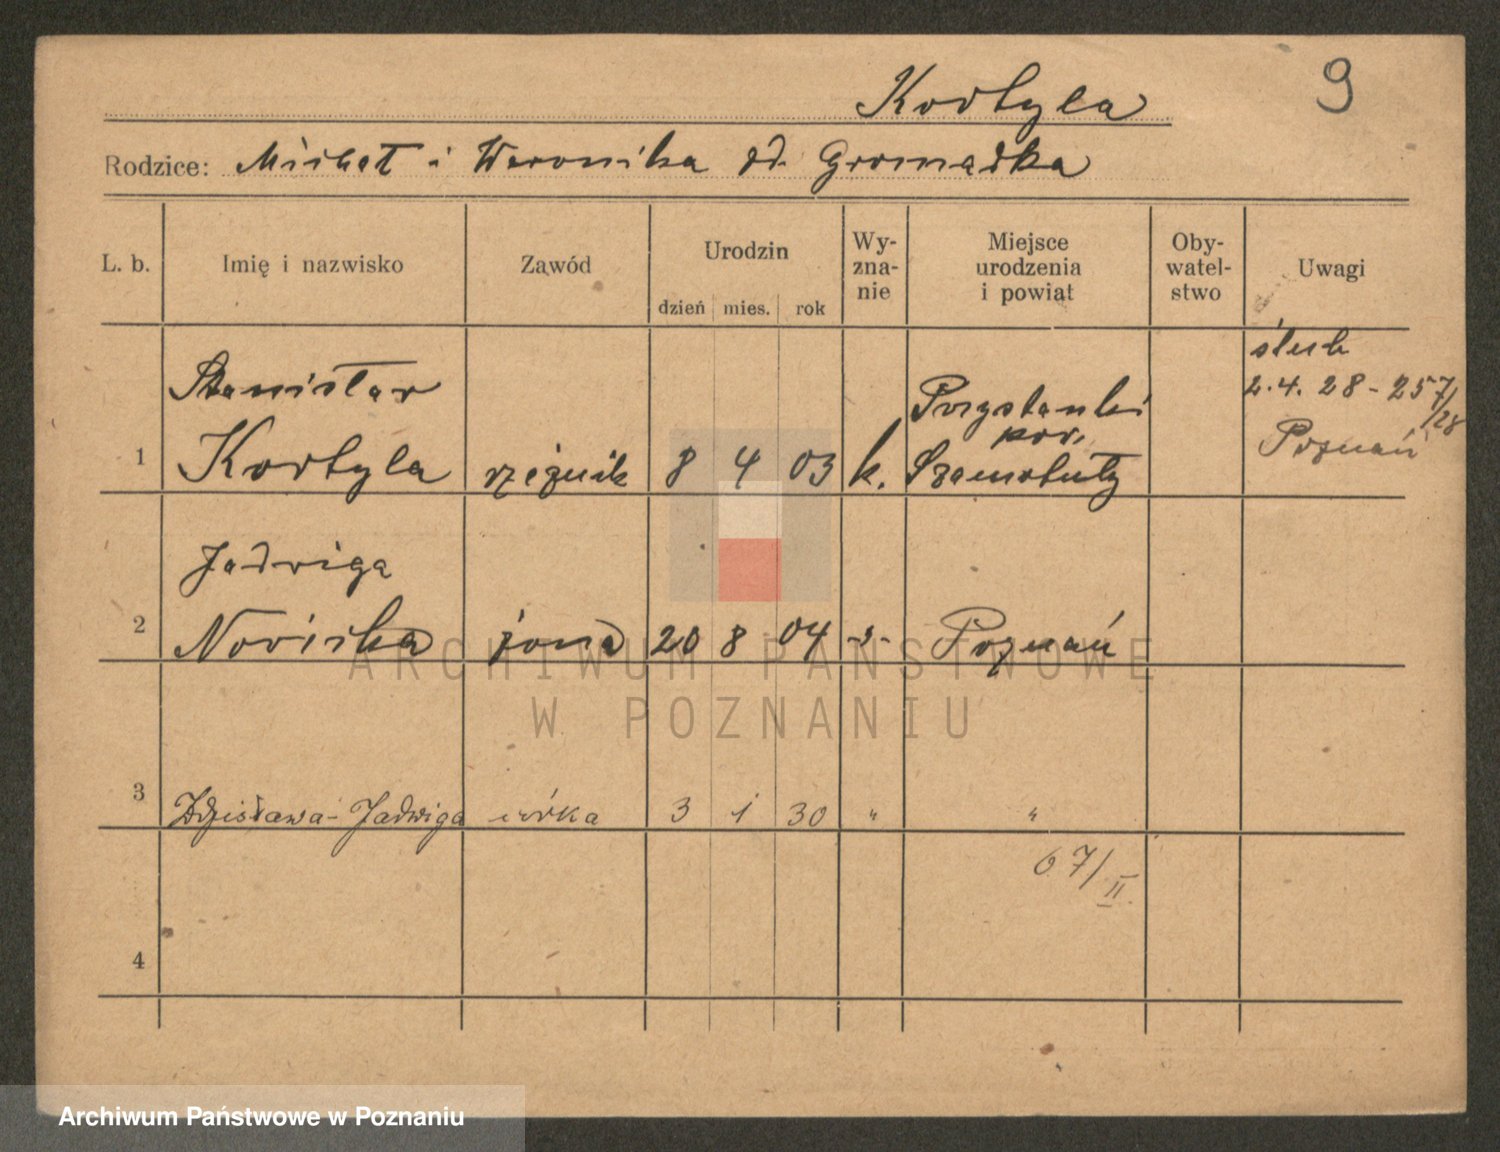 9
Kortyla
Rodzice: Michał i Weronika dd. Gromadka
L. b. Imię i nazwisko Zawód Urodzin Wy-zna-nie Miejsce urodzenia i powiat Oby-watel-stwo Uwagi
dzień mies. rok
ślub
2.4.28 - 257/28
Poznań
Stanisław
1 Kortyla rzeźnik 8 4 03 k. Przystanki pow. Szamotuły
Jadwiga
2 żona 20 8 04 Poznań
3 Zdzisława-Jadwiga córka 3 1 30 " "
67/II
4
ARCHIWUM PAŃSTWOWE
W POZNANIU
Archiwum Państwowe w Poznaniu